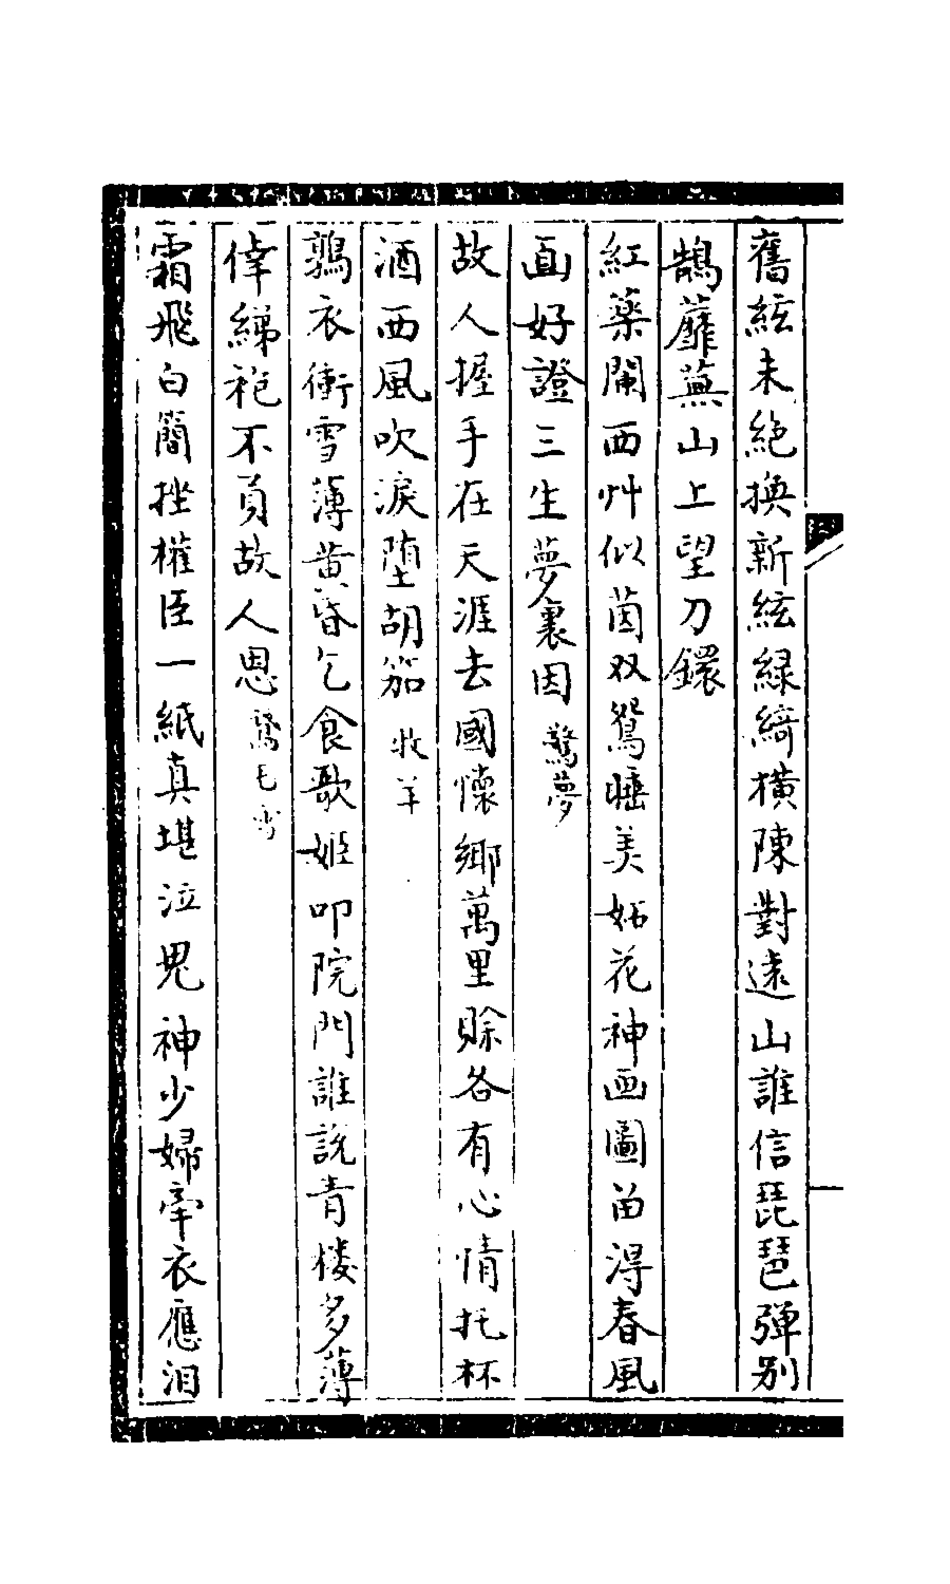 舊絃未絶換新絃綠綺橫陳對遠山誰信琵琶彈别
鵠蘼蕪山上望刀鐶
紅藥闌西艸似茵双鴛睡美妬花神画圖畄得春風
面好證三生夢裏因 驚夢
故人握手在天涯去國懷鄉萬里賒各有心情托杯
酒西風吹淚墮胡笳 牧羊
鶉衣衝雪薄黄昏乞食歌姬叩院門誰説青楼多薄
倖綈袍不負故人恩 鵞毛雪
霜飛白簡挫權臣一紙真堪泣鬼神少婦牽衣應泪